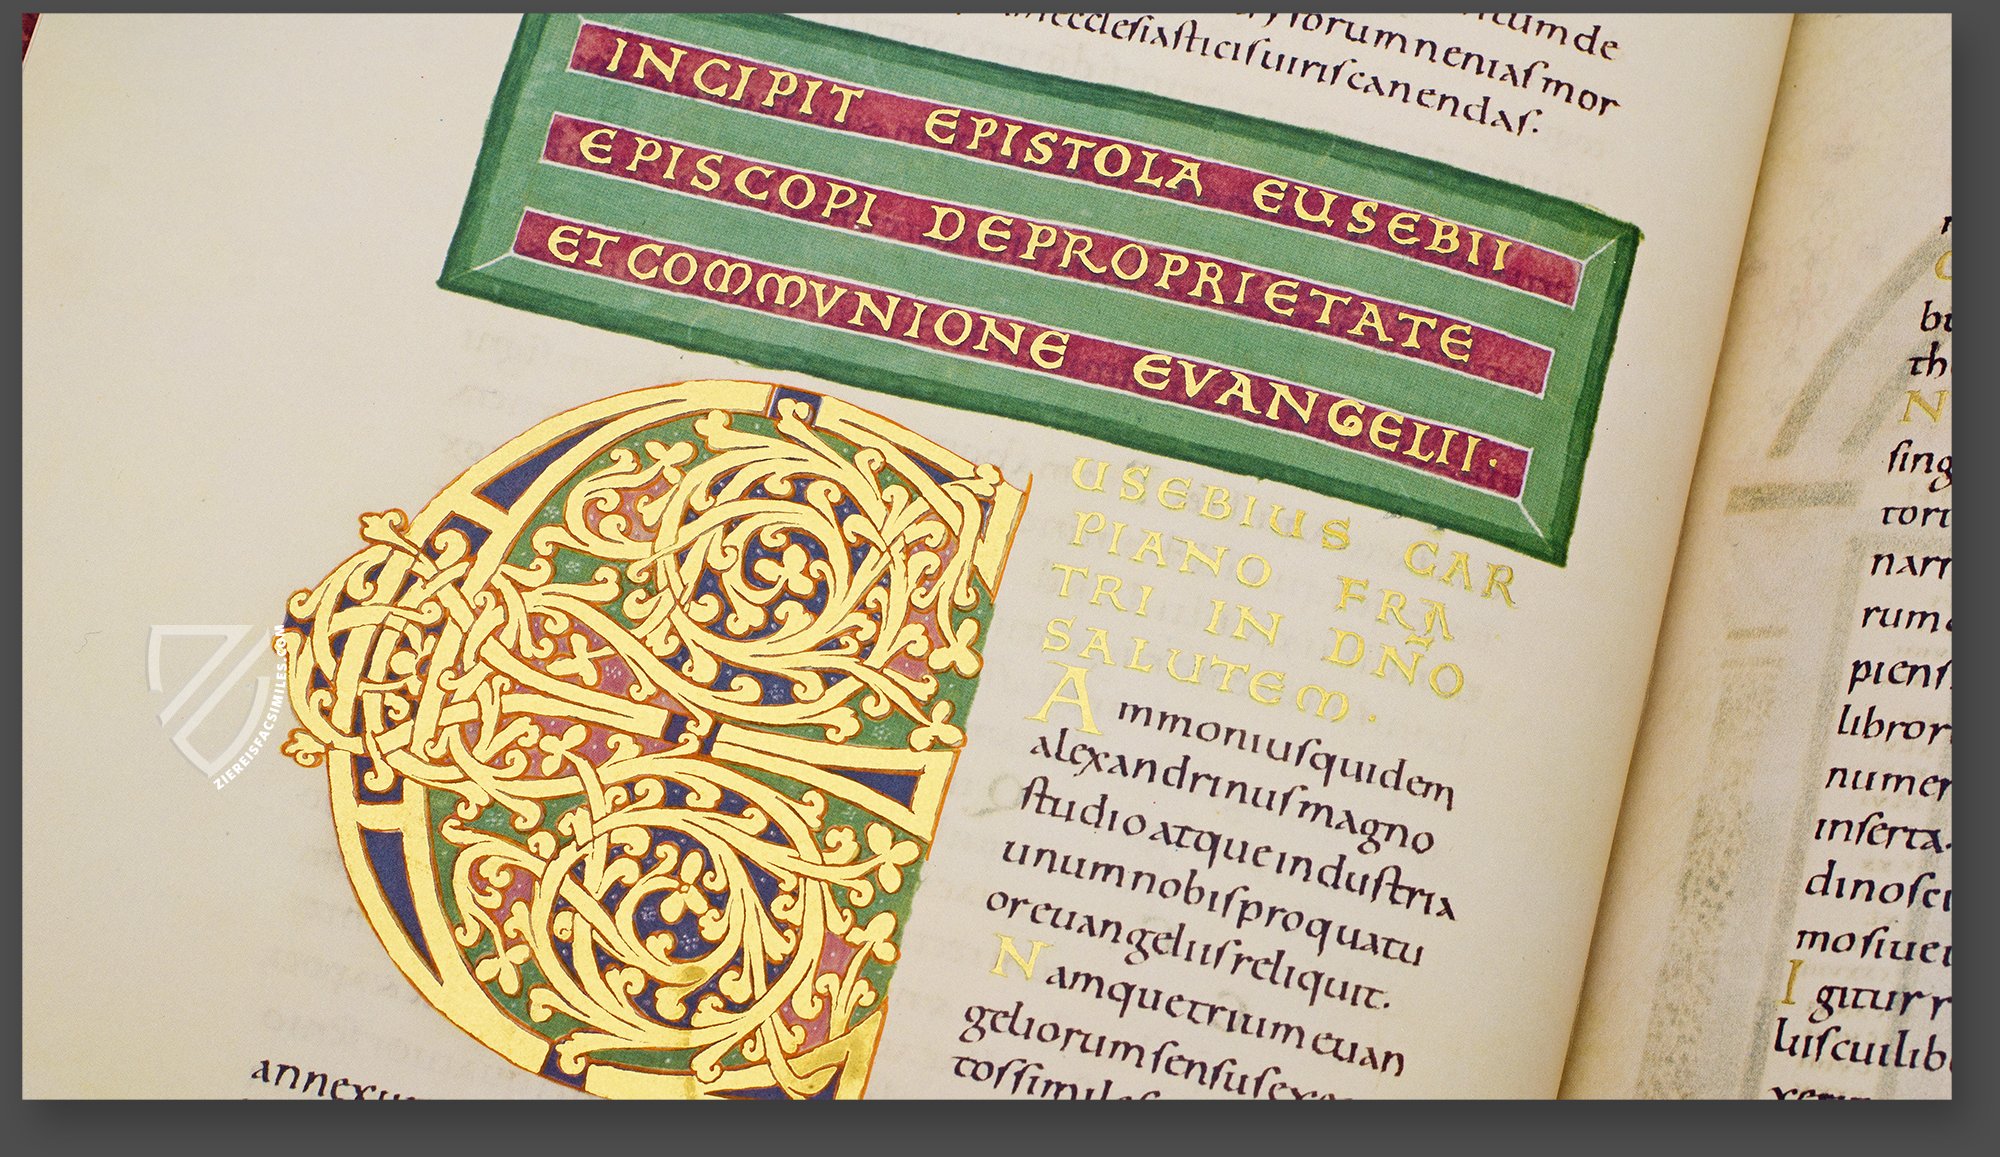 umde
forumneniasmor
inecclesiasticisuiriscanendas.
INCIPIT EPISTOLA EUSEBII
EPISCOPI DEPROPRIETATE
ET COMMVNIONE EVANGELII·
USEBIUS CAR
PIANO FRA
TRI IN DÑO
SALUTEM·
Ammoniusquidem
alexandrinusmagno
studioatqueindustria
unumnobisproquatu
oreuangeliisreliquit.
Namquetriumeuan
geliorumsensusexce
annexus
bu
th
N
sing
tort
narr
rum
piens
libror
numer
inserta.
dinosci
mosiuei
Igitur r
luiscuilib
ZIEREISFACSIMILES.COM